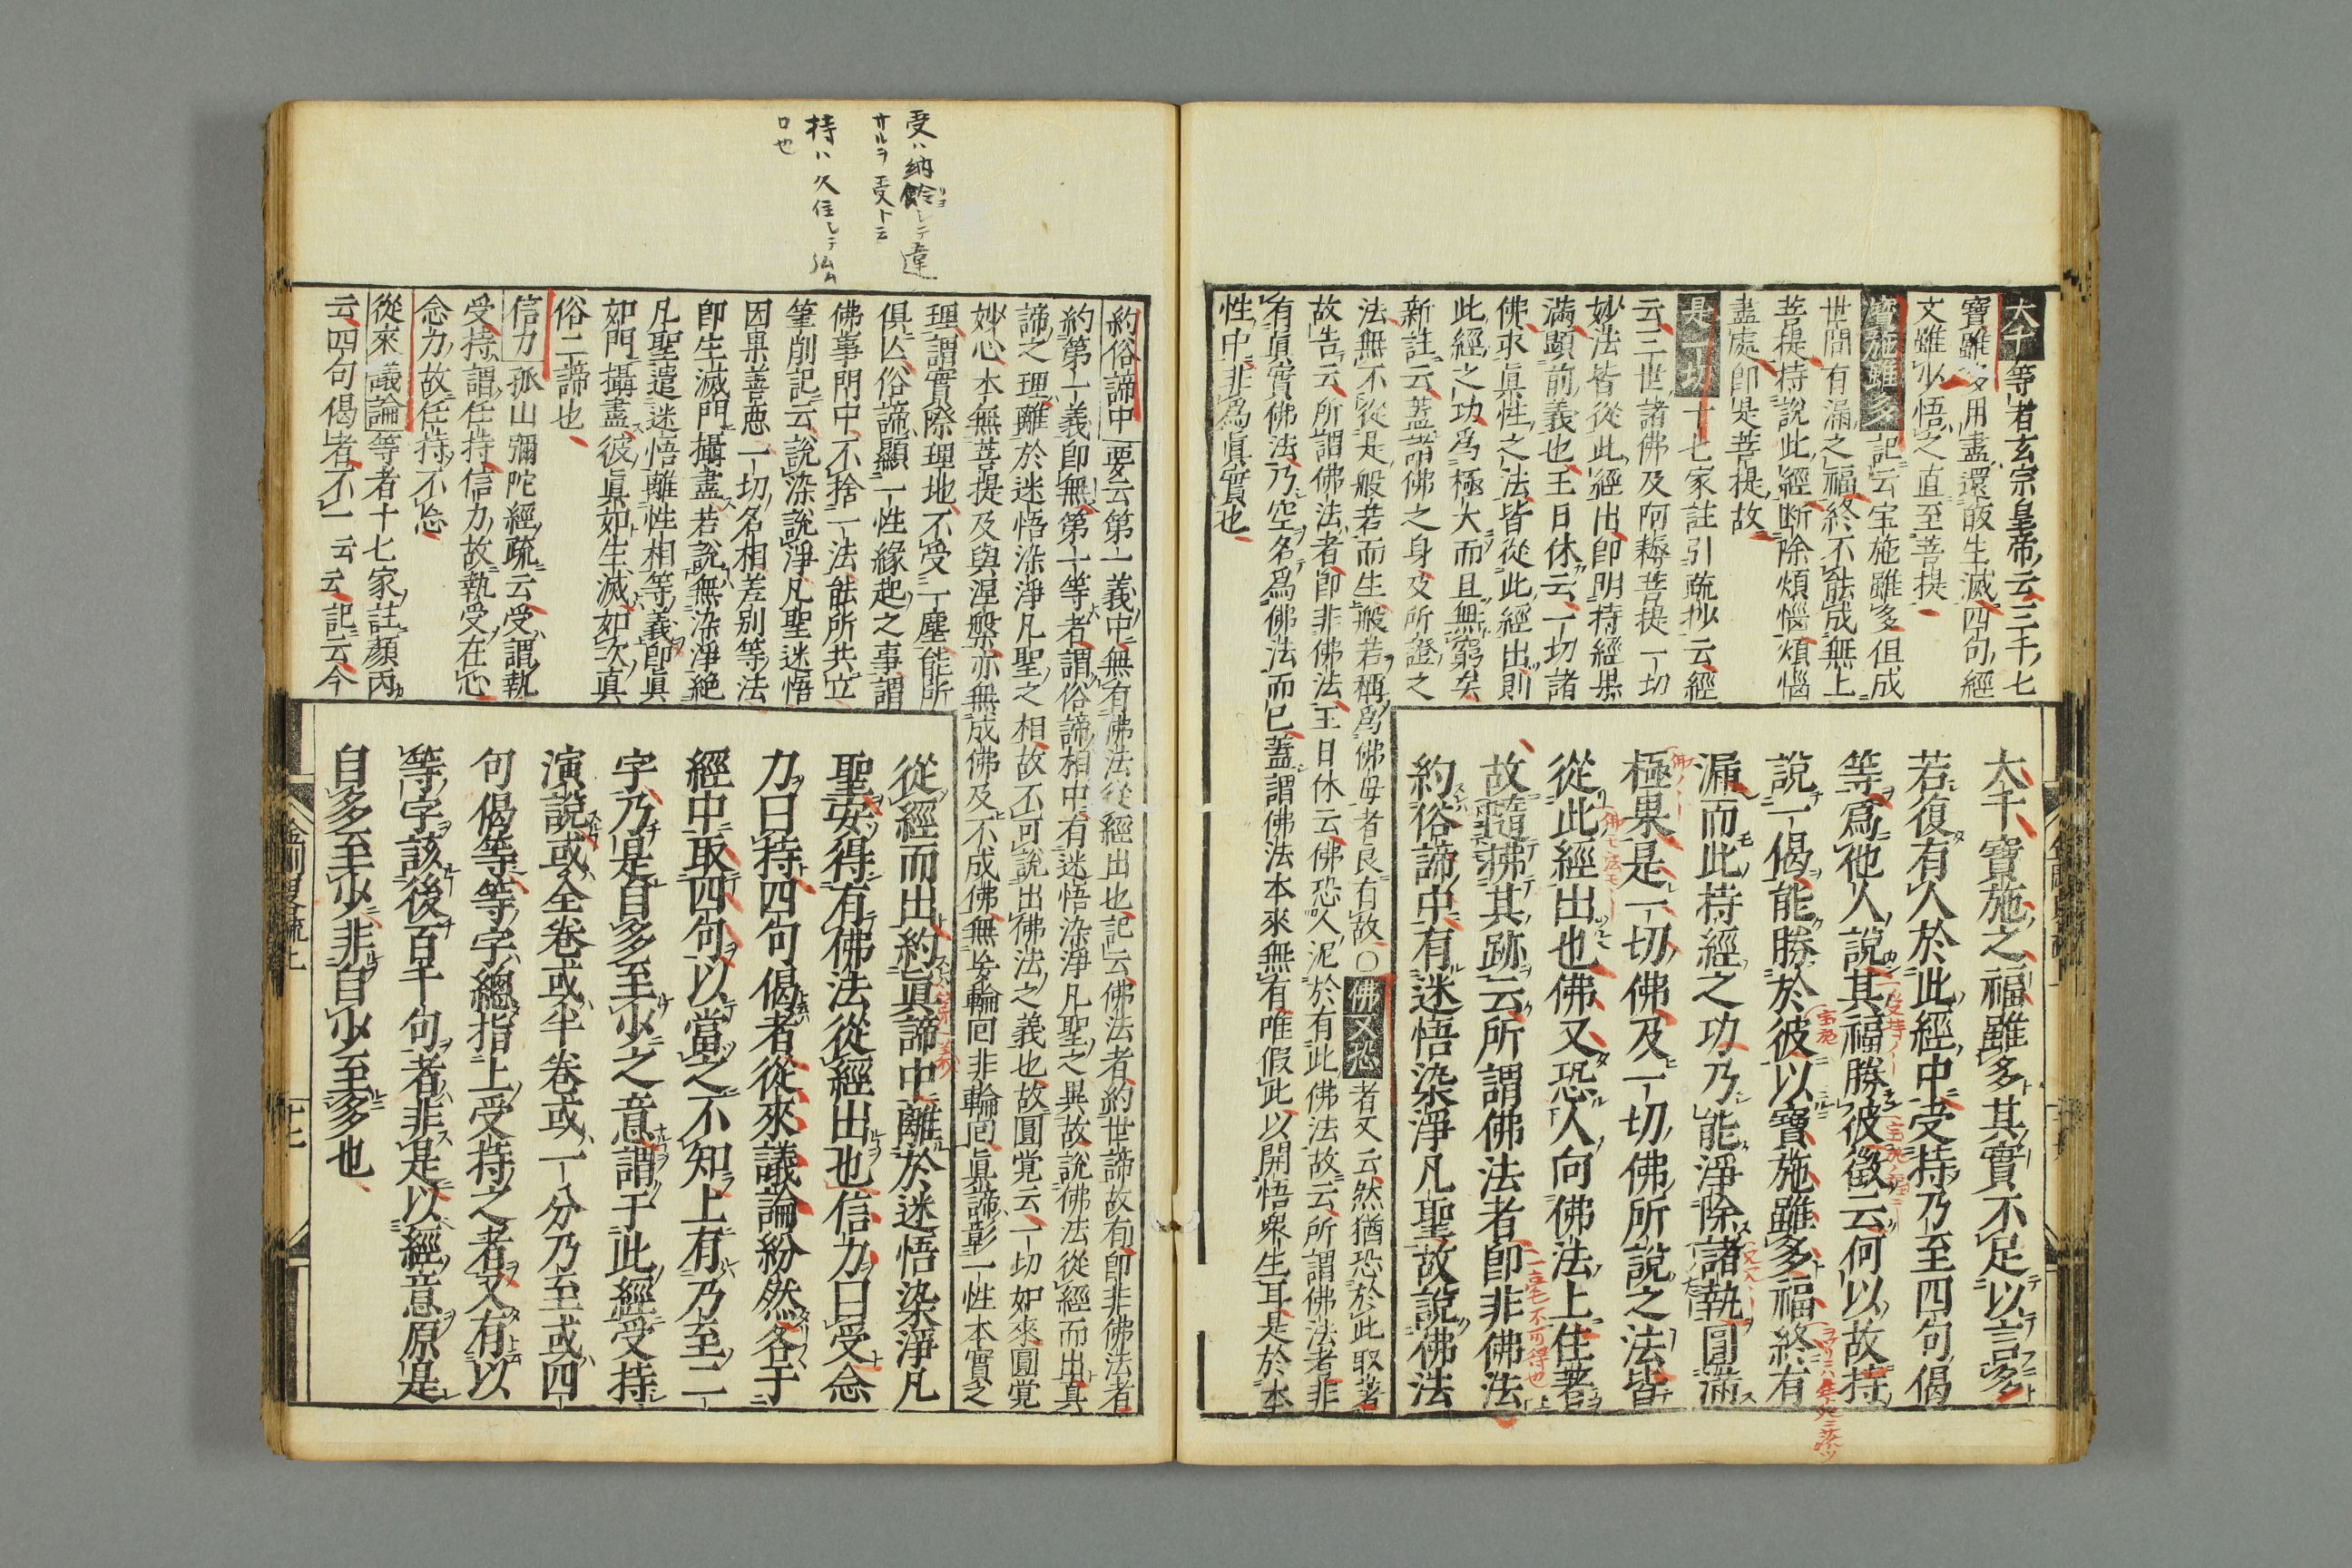 大千等者玄宗皇帝云三千七
寶雖多用盡還皈生滅四句經
文雖少悟之直至菩提
寶施雖多記云宝施雖多但成
世間有漏之福終不能成無上
菩提持說此經断除煩惱煩惱
盡處即是菩提故
是一切十七家註引疏抄云經
云三世諸佛及阿耨菩提一切
妙法皆從此經出即明持經果
満顕前義也王日休云一切諸
佛求真性之法皆從此經出則
此經之功為極大而且無窮矣
新註云蓋謂佛之身及所證之
法無不從是般若而生般若稱為佛母者良有故○佛又恐者又云然猶恐於此取著
故告云所謂佛法者即非佛法王日休云佛恐人泥於有此佛法故云所謂佛法者非
有真實佛法乃空名為佛法而已蓋謂佛法本來無有唯假此以開悟衆生耳是於本
性中非為真實也
大千寶施之福雖多其實不足以言多
若復有人於此經中受持乃至四句偈
等為他人說其福勝彼徵云何以故持
說一偈能勝於彼以寶施雖多福終有
漏而此持經之功乃能淨除諸執圓滿
極果是一切佛及一切佛所說之法皆
從此經出也佛又恐人向佛法上住著
故隨拂其跡云所謂佛法者即非佛法
約俗諦中有迷悟染淨凡聖故說佛法
受ハ納餘シテ違
サルヲ受ト云
持ハ久住シテ弘ム
口也
約俗諦中要云第一義中無有佛法從經出也記云佛法者約世諦故有即非佛法者
約第一義即無第一等者謂俗諦相中有迷悟染淨凡聖之異故說佛法從經而出真
諦之理離於迷悟染淨凡聖之相故不可說出佛法之義也故圓覚云一切如來圓覚
妙心本無菩提及與涅槃亦無成佛及不成佛無妄輪回非輪回真諦彰一性本實之
理謂實際理地不受一塵能所
俱亡俗諦顯一性緣起之事謂
佛事門中不捨一法能所共立
筆削記云說染說淨凡聖迷悟
因果善惡一切名相差別等法
即生滅門攝盡若說無染淨絶
凡聖遣迷悟離性相等義即真
如門攝盡彼真如生滅如次真
俗二諦也
信力孤山彌陀經疏云受謂執
受持謂任持信力故執受在心
念力故任持不忘
從來議論等者十七家註顏丙
云四句偈者不一云云記云今
從經而出約真諦中離於迷悟染淨凡
聖安得有佛法從經出也信力曰受念
力曰持四句偈者從來議論紛然各于
經中取四句以當之不知上有乃至二
字乃是自多至少之意謂于此經受持
演說或全卷或半卷或一分乃至或四
句偈等等字總指上受持之者又有以
等字該後百千句者非是以經意原是
自多至少非自少至多也
金剛畧疏上
十二